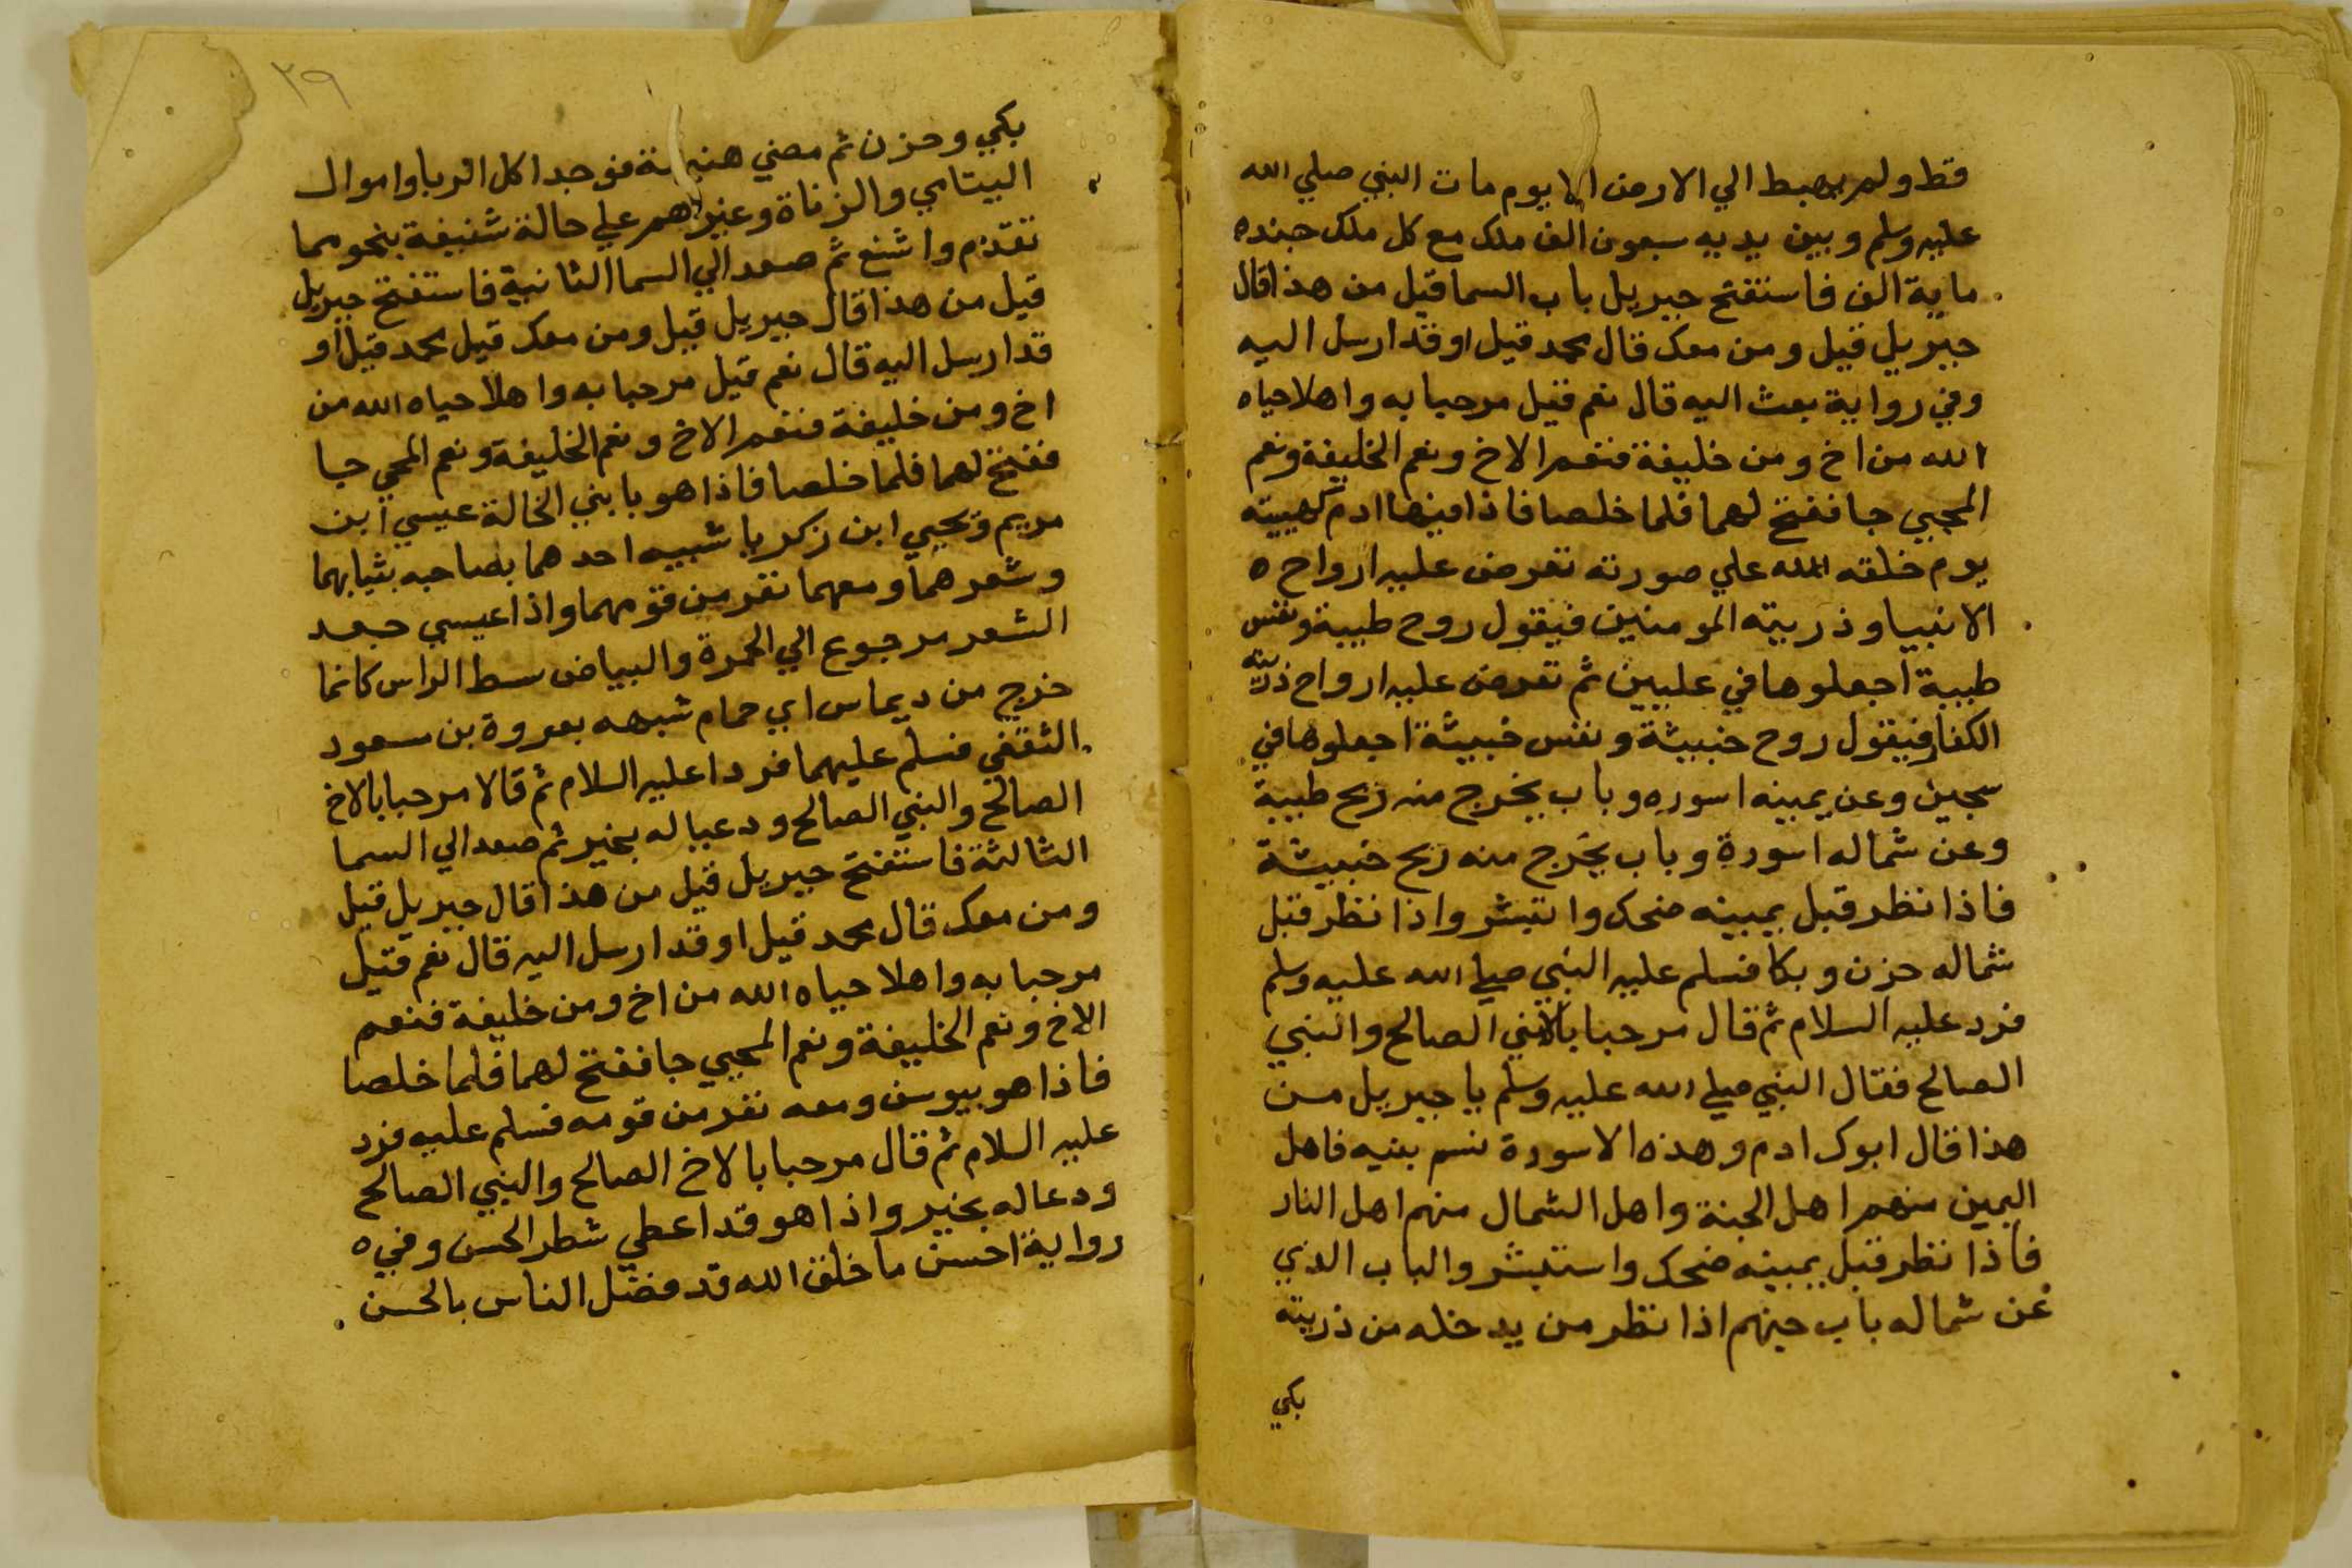 قط ولم يهبط الي الارض الا يوم مات النبي صلي الله
عليه وسلم وبين يديه سبعون الف ملك مع كل ملك جنده
ماية الف فاستفتح جبريل باب السما قيل من هذا قال
جبريل قيل ومن معك قال محمد قيل او قد ارسل اليه
وفي رواية بعث اليه قال نعم قيل مرحبا به واهلا حياه
الله من اخ ومن خليفة فنعم الاخ ونعم الخليفة ونعم
المجيي جا ففتح لهما فلما خلصا فاذا فيها ادم كهييته
يوم خلقه الله علي صورته تعرض عليه ارواح ه
الانبيا وذريته المومنين فيقول روح طيبة ونفس
طيبة اجعلوها في عليين ثم تعرض عليه ارواح ذريته
الكفار فيقول روح خبيثة ونفس خبيثة اجعلوها في
سجين وعن يمينه اسوره وباب يخرج منه ريح طيبة
وعن شماله اسودة وباب يخرج منه ريح خبيثة
فاذا نظر قبل يمينه ضحك واتبشر واذا نظر قبل
شماله حزن وبكا فسلم عليه النبي صلي الله عليه وسلم
فرد عليه السلام ثم قال مرحبا بالابني الصالح والنبي
الصالح فقال النبي صلي الله عليه وسلم يا جبريل من
هذا قال ابوك ادم وهذه الاسودة نسم بنيه فاهل
اليمين منهم اهل الجنة واهل الشمال منهم اهل النار
فاذا نظر قبل يمينه ضحك واستبشر والباب الذي
عن شماله باب جهنم اذا نظر من يدخله من ذريته
بكي
٢٩
بكي وحزن ثم مضي هنيهة فوجد اكل الربا واموال
اليتامي والزناة وغيرهم علي حالة شنيعة بنحو مما
تقدم واشنع ثم صعد الي السما الثانية فاستفتح جبريل
قيل من هذا قال جبريل قيل ومن معك قيل محمد قيل او
قد ارسل اليه قال نعم قيل مرحبا به واهلا حياه الله من
اخ ومن خليفة فنعم الاخ ونعم الخليفة ونعم المجي جا
ففتح لهما فلما خلصا فاذا هو بابني الخالة عيسي ابن
مريم ويحيي ابن زكريا شبيه احدهما بصاحبه بثيابهما
وشعرهما ومعهما نفر من قومهما واذا عيسي جعد
الشعر مرجوع الي الحمرة والبياض سبط الراس كانما
خرج من ديماس اي حمام شبهه بعروة بن سعود
الثقفي فسلم عليهما فردا عليه السلام ثم قالا مرحبا بالاخ
الصالح والنبي الصالح ودعيا له بخير ثم صعد الي السما
الثالثة فاستفتح جبريل قيل من هذا قال جبريل قيل
ومن معك قال محمد قيل او قد ارسل اليه قال نعم قيل
مرحبا به واهلا حياه الله من اخ ومن خليفة فنعم
الاخ ونعم الخليفة ونعم المجيي جا ففتح لهما فلما خلصا
فاذا هو بيوسن ومعه نفر من قومه فسلم عليه فرد
عليه السلام ثم قال مرحبا بالاخ الصالح والنبي الصالح
ودعا له بخير واذا هو قد اعطي شطر الحسن وفي ه
رواية احسن ما خلق الله قد فضل الناس بالحسن